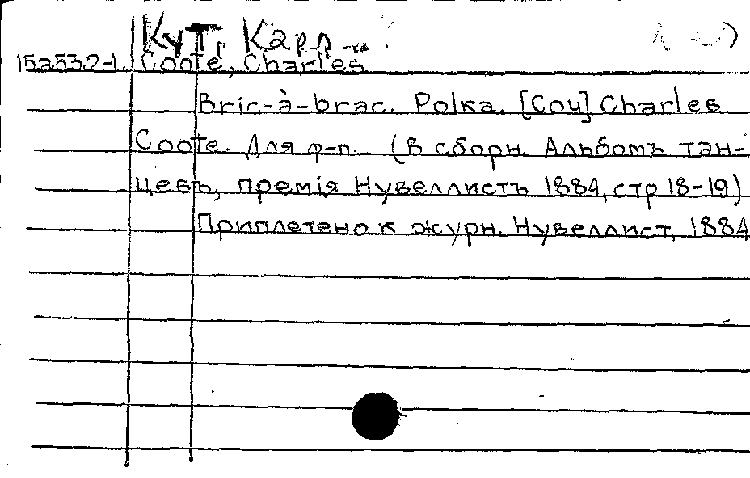 Кут, Карр
15a532-1. Coote, Charles
Bric-à-brac. Polka. [Соч] Charles
Coote. Для ф-п. (В сборн. Альбомъ тан-
цевъ, премія Нувеллистъ 1884, стр 18-19)
Приплетено к журн. Нувеллист, 1884